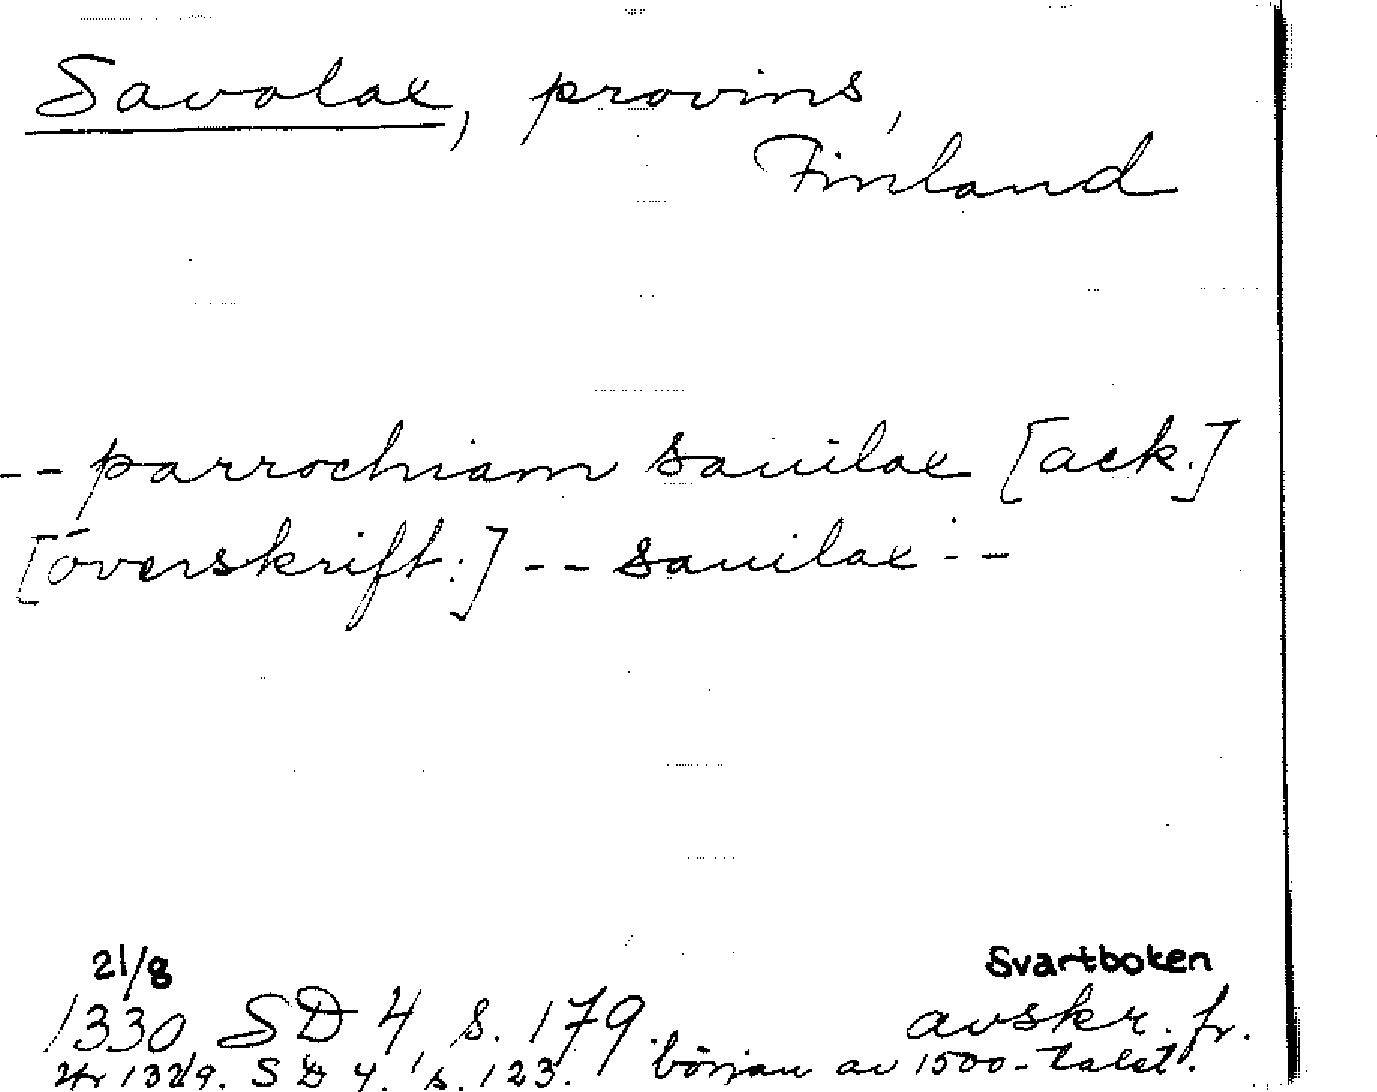 Savolax, provins,
Finland
-- parrochiam sauilax [ack.]
[överskrift:] -- sauilax --
21/8
Svartboken
1330 SD 4 s. 179.
avskr. fr.
början av 1500-talet.
SD 4. s. 123.